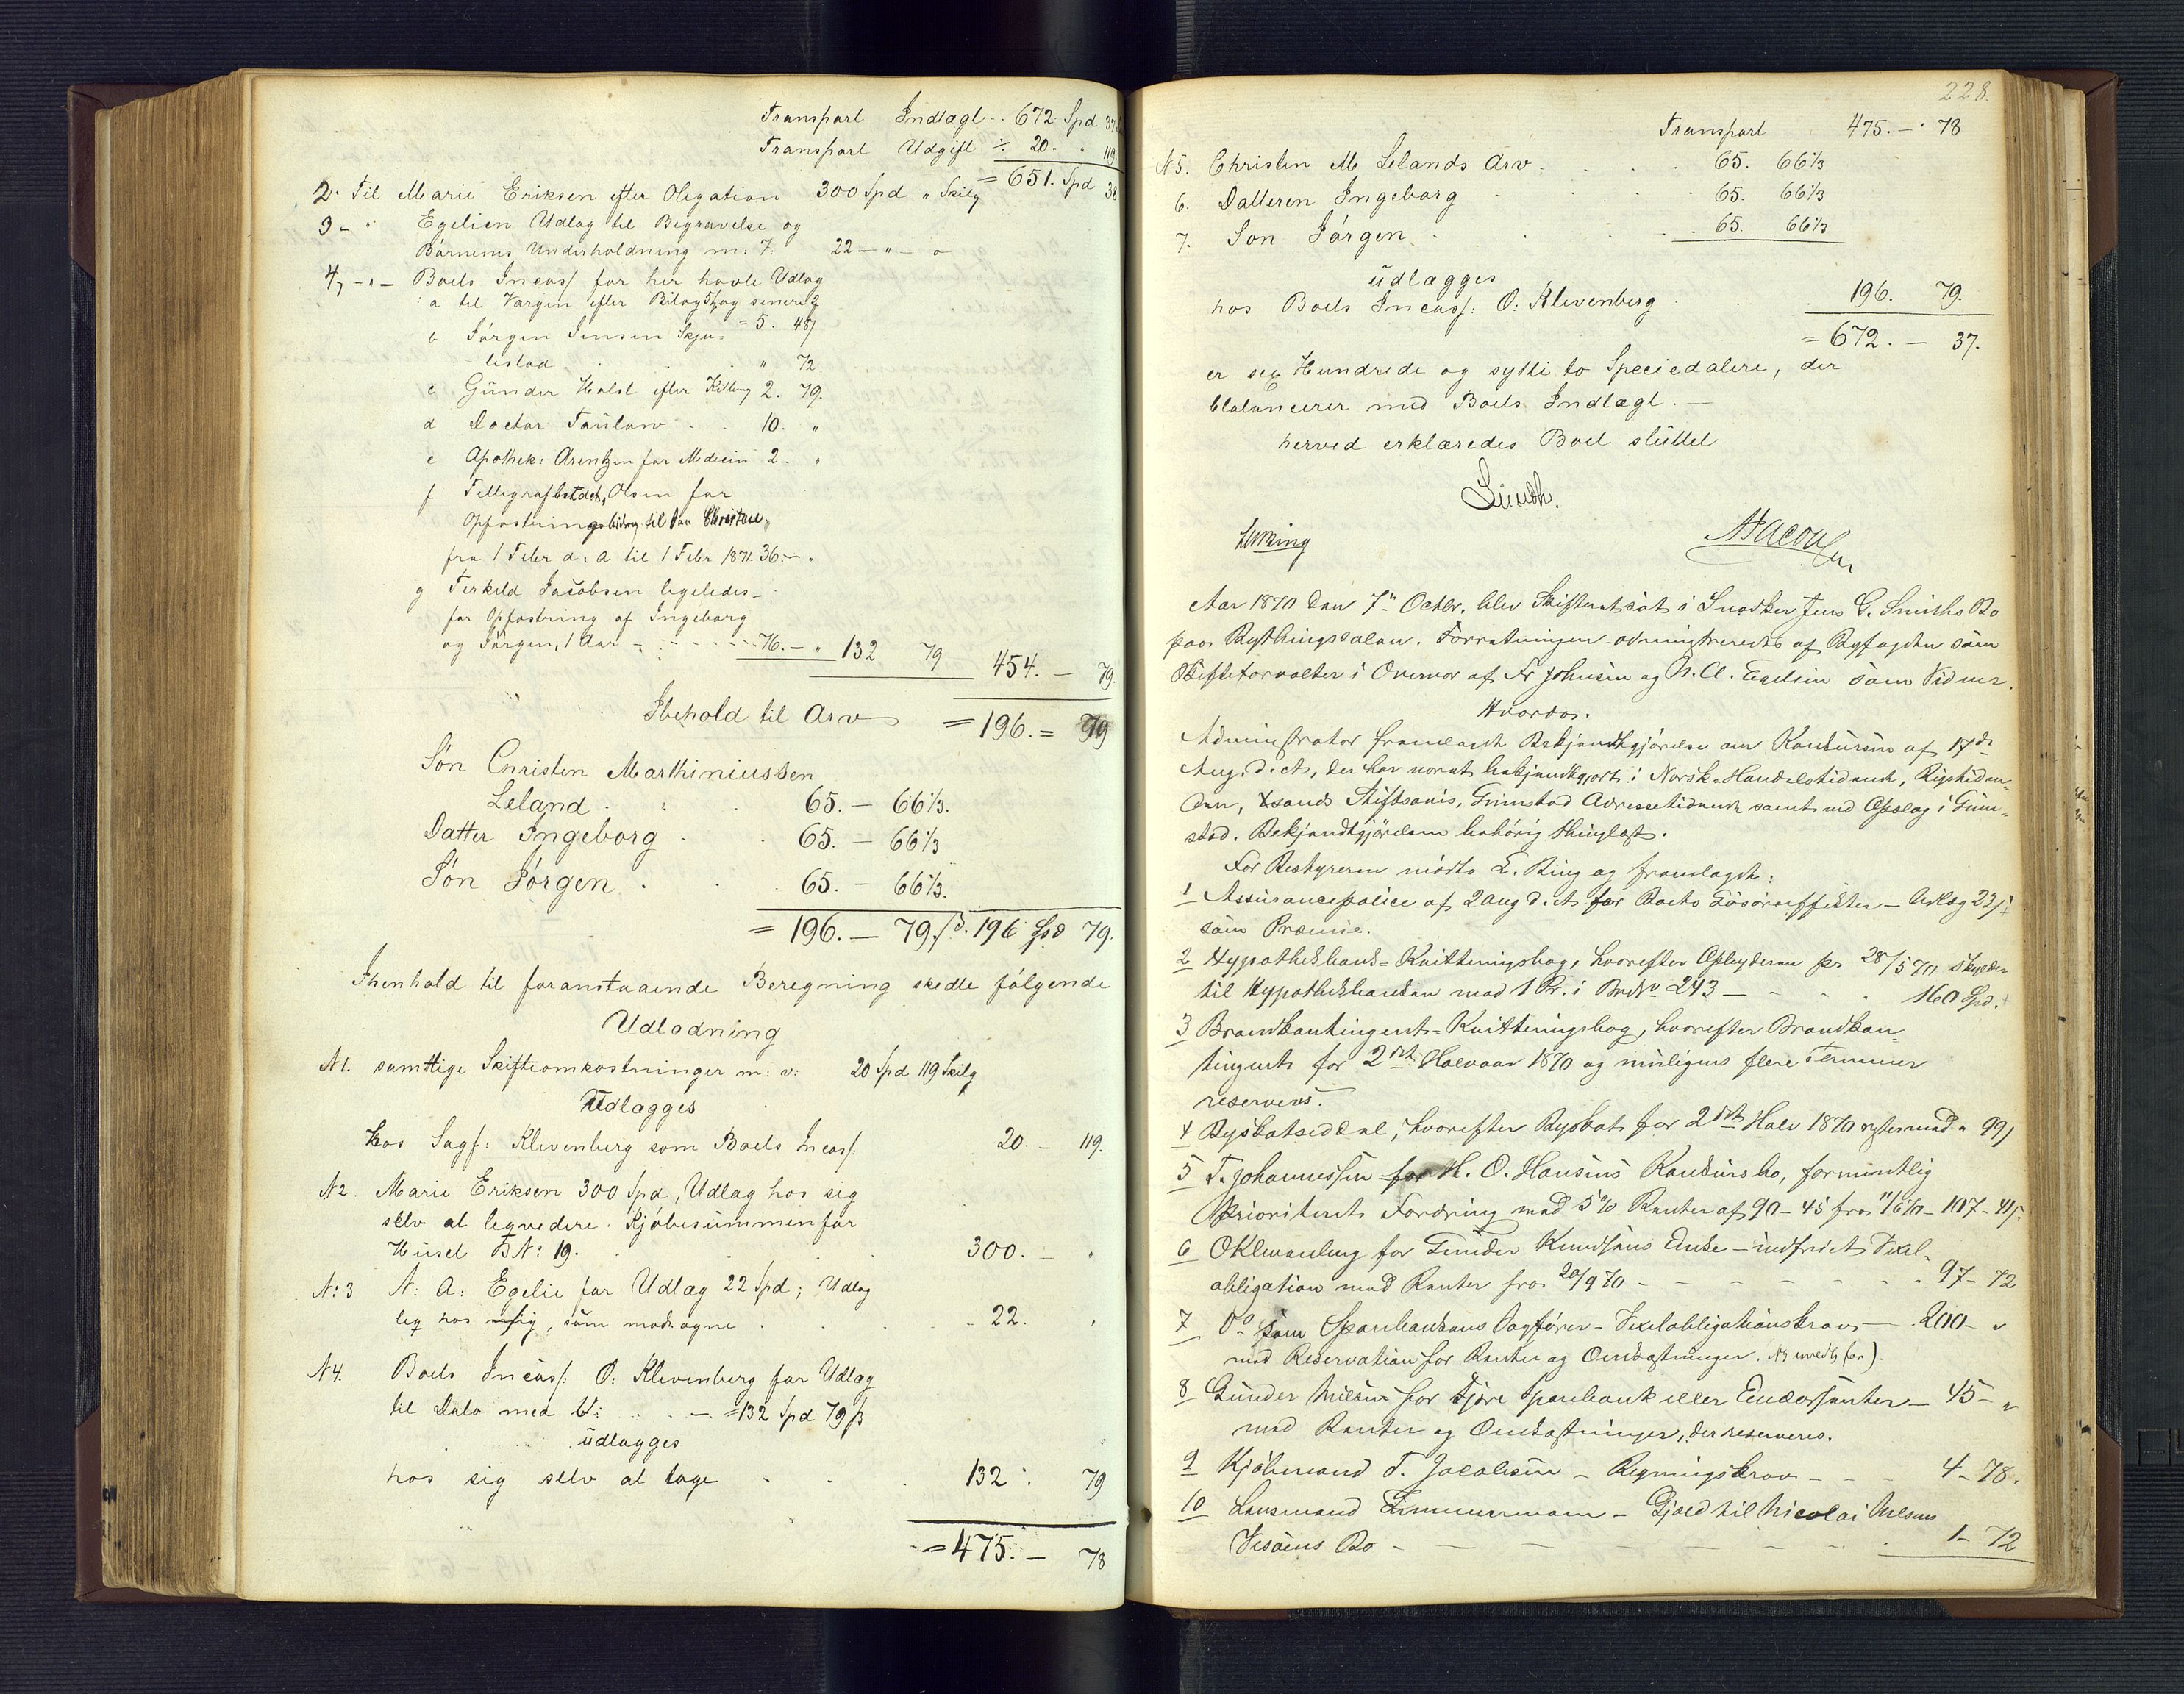 Transport Indtægt - . 672 Spd 37
Transport Udgift ÷ 20. " 119.
= 651. Spd 38
2. Til Marie Eriksen efter Oligation 300 Spd " Skilg
3 - " Egelien Udlæg til Begravelse og
Børnenes Underholdning m: 7: 22 - " -
4, - " - Boets Incass/ for her havte Udlæg
a til Vargen efter Bilag og senere
= 5. 45/
b Jørgen Jensen Skju-
lestad . . . " 72
c Günder Holst efter Kitteng 2. 79.
d Doctor Taulow . . 10. "
e Apothek: Arentzen for Medicin 2. "
f Tellegrafbetdch. Olsen for
Opfostringsbidrag til Søn Christen
fra 1 Febr d: a til 1 Febr 1871. 36 - "
g Terkeld Jacobsen ligeledes -
for Opfostring af Ingeborg
og Jørgen, 1 Aar - - - - 76. - " 132 79 454. - 79.
Ibehold til Arv = 196. = 79
Søn Christen Marthiniussen
Leland . . . 65. - 66 1/3.
Datter Ingeborg . . 65. - 66 1/3
Søn Jørgen . . 65. - 66 1/3.
= 196. - 79 196 Spd 79.
Ihenhold til foranstaaende Beregning skedte følgende
Udlodning
N1. samttige Skifteomkostninger m: v: 20 Spd 119 Skilg
Udlægges
hos Sagf: Klevenberg som Boets Incass/. 20. - 119.
N2. Marie Eriksen 300 Spd, Udlæg hos sig
selv at leqvedere Kjøbesummen for
Huset BN: 19. . . . 300. - "
N:3 N: A: Egelie for Udlæg 22 Spd; Udlæg
leg hos sig, som modtagne . . . 22. "
N4. Boets Incass/: O: Klevenberg for Udlæg
til Dato med . . - = 132 Spd 79 ß
udlægges
hos sig selv at tage . . . 132 : 79
= 475. - 78
228.
Transport 475. - " 78
N5. Christen M Lelands Arv . . . 65. 66 1/3
6. Datteren Ingeborg . . 65. 66 1/3
7. Søn Jørgen . . . 65. 66 1/3
udlægges
hos Boets Incass/: O: Klevenberg . . 196. 79.
= 672. - 37.
er sex Hundrede og sytti to Speciedalere, der
blalancerer med Boets Indtægt. -
herved erklæredes Boet sluttet
Aar 1870 den 7de Octbr. blev Skifteret sat i Snedker Jens G. Smiths Bo
paa Bythingssalen. Forretningen administreredes af Byfogden som
Skifteforvalter i Overvær af Fr Johnsen og N. A. Egelien som Vidner.
Hvorda.
Administrator fremlagde Bekjendtgjørelse om Konkursen af 17de
Aug. d. A., der har været bekjendtgjort i Norsk-Handelstidende, Rigstiden-
den, Xsands Stiftsavis, Grimstad Adressetidende samt ved Opslag i Grim-
stad. Bekjendtgjørelsen behørig thinglæst.
For Bestyreren mødte L. Bing og fremlagde:
1 Assurancepolice af 2 Aug d. A. for Boets Løsøreeffekter - Udlæg 23 ß
som Præmie.
2 Hypothekbank-Kvitteringsbog, hvorefter Opbyderen pr 28/5 70 skylder
til Hypothekbanken med 1 Pr. i BndN 243 - - - . 160 Spd.
3 Brandkontingent-Kvitteringsbog, hvorefter Brandkon-
tingent for 2det Halvaar 1870 og muligens flere Terminer
reserveres.
4 Byskatseddel, hvorefter Byskat for 2det Halv 1870 med " 99/
5 T. Johannessen for H. O. Hansens Konkursbo, formentlig
Prioriteret Fordring med 5% Renter af 90 - 45 fra 11/6 70 - 107 - 41/.
6 O Klevenberg for Gunder Knudsens Enke - indfriet Vexel-
obligation med Renter fra 20/9 70 - - - - - - 97 - 72
7 Do som Sparebankens Sagfører - Vexelobligationskrav - . 200 - "
med Reservation for Renter og Omkostninger.
8 Günder Nilsen for Fjære Sparebank eller Endossenter - 45 - "
med Renter og Omkostninger, der reserveres.
9 Kjøbmand T. Jacobsen - Regningskrav - - - 4 - 78.
10 Lensmand Zimmermann - Gjæld til Nicolai Nilsens
Bo - - - - - - 1 - 72